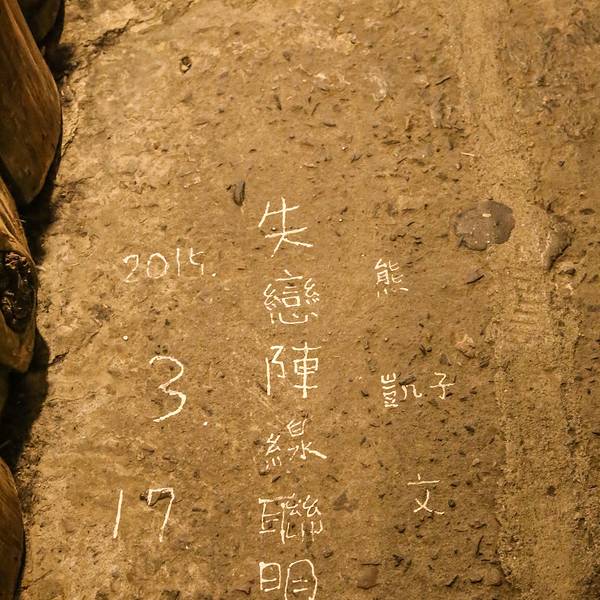 熊
凱子
文
失戀陣線聯明
2015.
3.
17